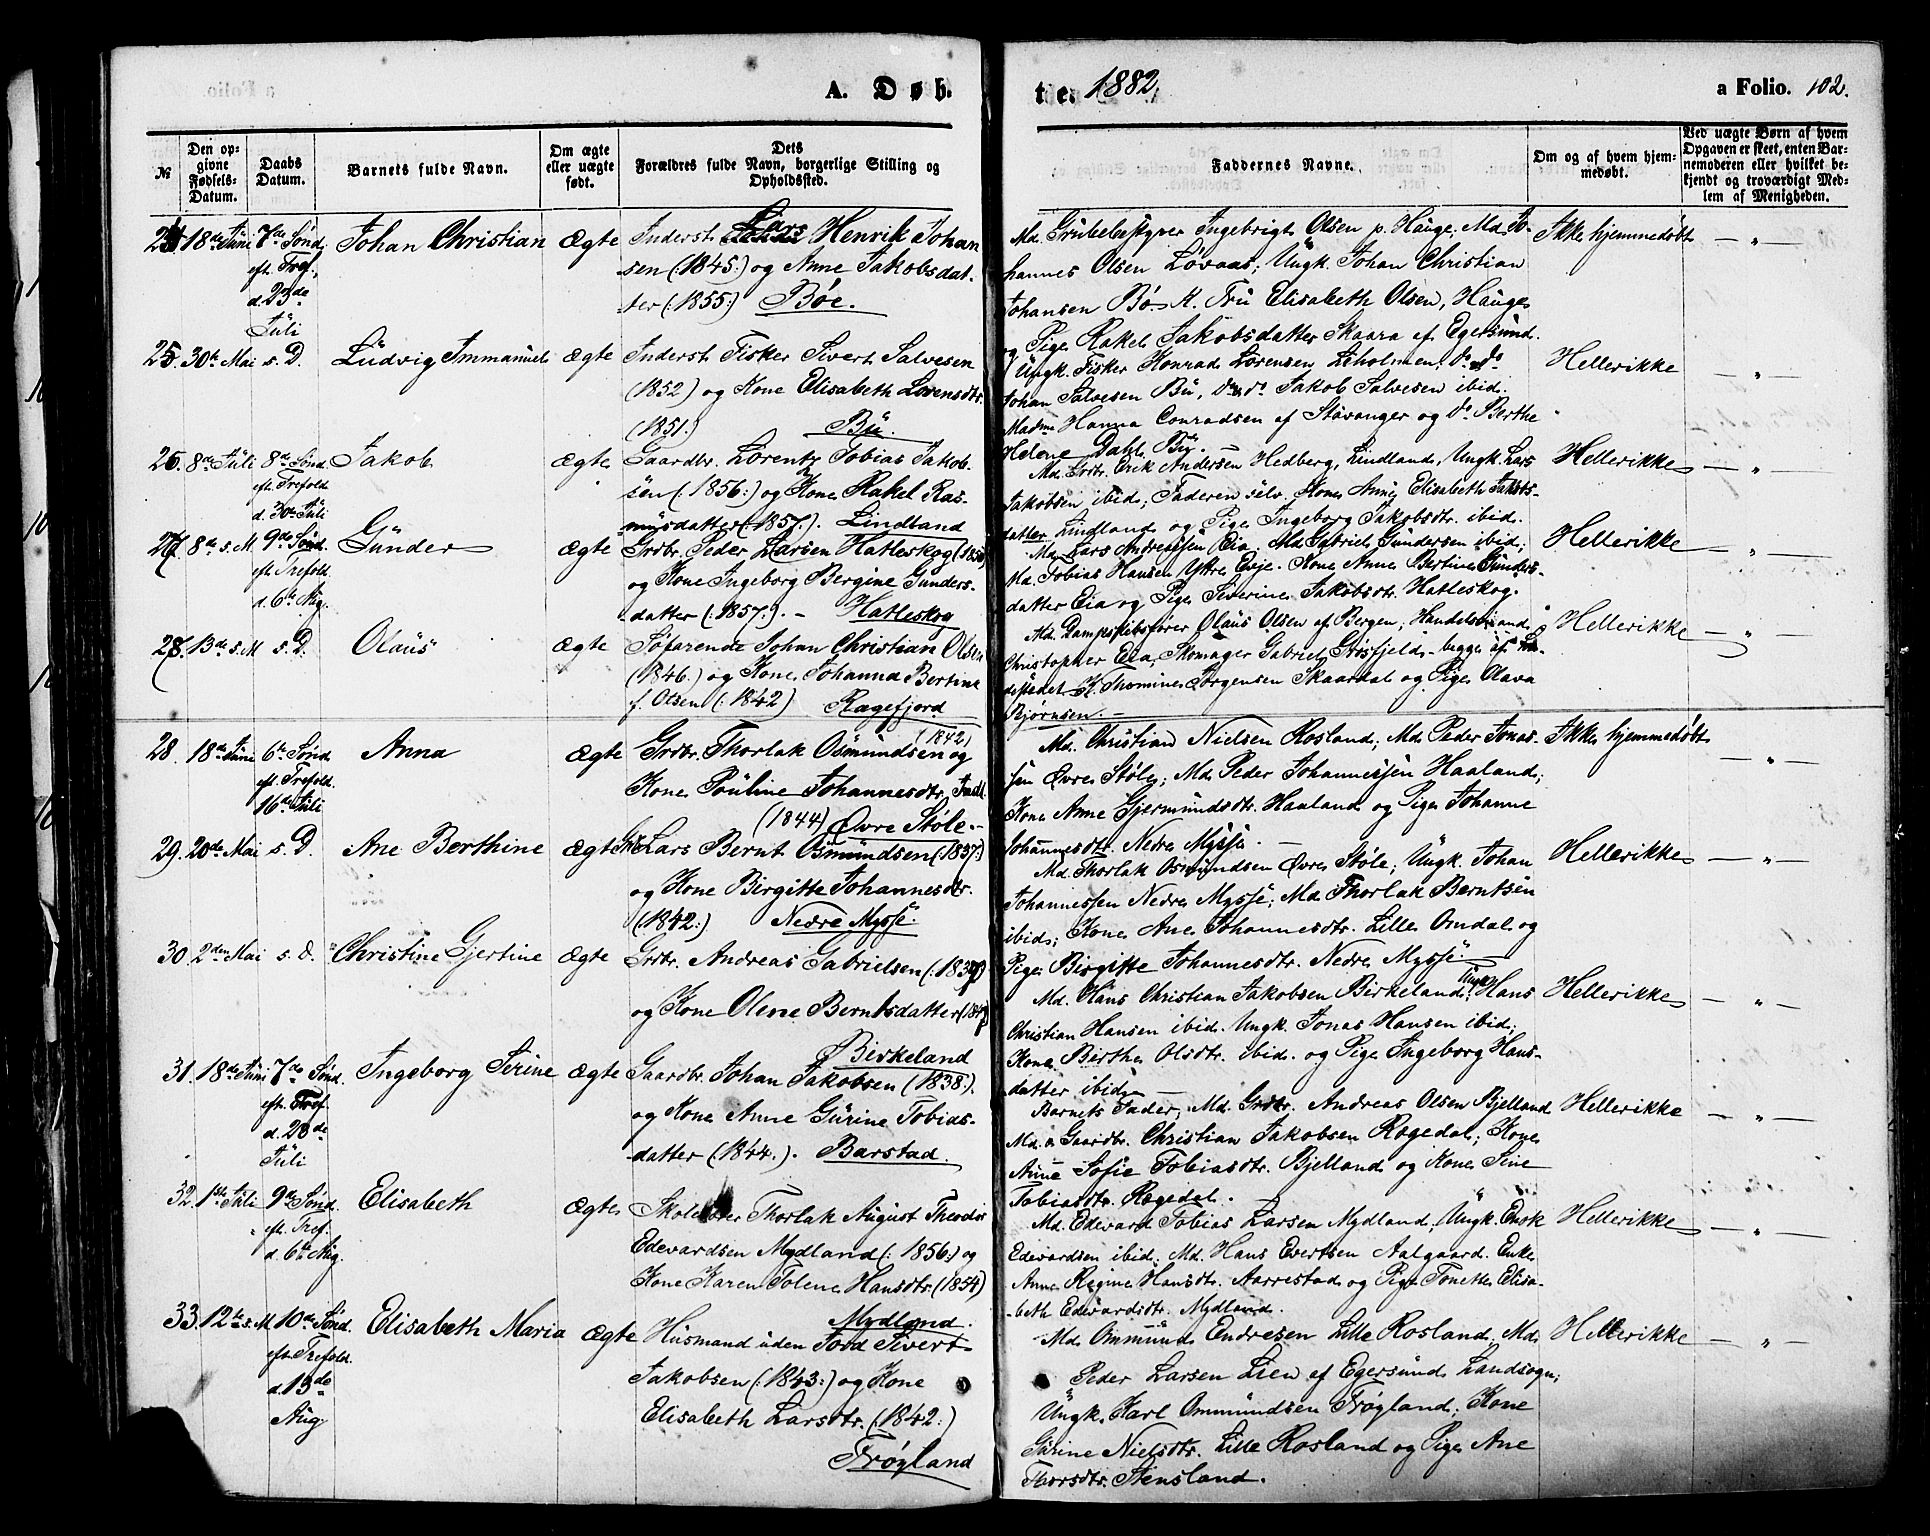 A. Døb.
te. 1882.
a Folio. 102.
№
Den op-
givne
Fødsels-
Datum.
Daabs
Datum.
Barnets fulde Navn.
Om ægte
eller uægte
født.
Dets
Forældres fulde Navn, borgerlige Stilling og
Opholdssted.
Faddernes Navne.
Om og af hvem hjem-
medøbt.
Ved uægte Børn af hvem
Opgaven er skeet, enten Bar-
nemoderen eller hvilket be-
kjendt og troværdigt Med-
lem af Menigheden.
24 18de Juni 7de Sønd.
eft. Tref.
d. 23de
Juli
Johan Christian
Ægte
Inderst Lars Henrik Johan
sen (1845:) og Anne Jakobsdat-
ter (:1855:) Bøe.
Md. Grubebestyrer Ingebrigt Olsen p. Hauge, Md. Jo-
hannes Olsen Løvaas, Ungk. Johan Christian
Johansen Bø. K. Fru Elisabeth Olsen, Hauge
og Pige Rakel Jakobsdatter Skaara af Egersund.
Ikke hjemmedøbt
— „ —
25. 30te Mai s. D.
Ludvig Immanuel
ægte
Inderst Fisker Sivert Salvesen
(1852) og Kone Elisabeth Lorensdtr.
(1851.) Bü.
Ungk. Fisker Konrad Lorensen Liholmen, do do
Johan Salvesen Bü, do do Jakob Salvesen ibid.
Madme Hanna Conradsen af Stavanger og do Berthe
Helene Dahl Bü. —
Hellerikke
— „ —
26. 8de Juli 8de Sønd.
eft. Trefold.
d. 30te Juli
Jakob
ægte
Gaardbr. Lorentz Tobias Jakob-
sen (:1856:) og Kone Rakel Ras-
musdatter (1857.). Lindland
Md. Grdbr. Erik Andersen Hedberg, Lindland, Ungk. Lars
Jakobsen ibid; Faderen selv. Kone Anne Elisabeth Jakobs-
datter Lindland og Pige Ingeborg Jakobsdtr. ibid.
Hellerikke
— „
27. 8de s. M. 9de Sønd.
eft. Trefold.
d. 6te Aug.
Gunder
ægte
Grdbr. Peder Larsen Hatleskog
og Kone Ingeborg Bergine Gunders-
datter (:1857.). — Hatleskog
Md. Lars Andreassen Eia, Md. Gabriel Gundersen ibid;
Md. Tobias Hansen Yttre Evje. Kone Anne Bertine Gunders-
datter Eia og Pige Severine Jakobsdtr. Hatleskog.
Hellerikke
— „ —
27. 13de s. M s. D.
Olaus
ægte
Søfarende Johan Christian Olsen
(1846.) og Kone Johanna Bertine
f. Olsen (:1842) Ragefjord
Md. Dampskibsfører Olaus Olsen af Bergen; Handelsmand
Christopher Eia, Skomager Gabriel Grøsfjeld - begge af
destedet K. Thomine Jørgensen Skaardal og Pige Olava
Bjørnsen. —
Hellerikke
— „ —
28. 18de Juni 6te Sønd.
eft. Trefold.
16de Juli
Anna
ægte
(1842)
Grdbr. Thorlak Osmundsen og
Kone Pauline Johannesdtr.
(1844) Øvre Støle.—
Md. Christian Nielsen Rosland; Md. Peder Jonas-
sen Øvre Støle; Md. Peder Johannessen Haaland;
Kone Anne Gjermundsdtr. Haaland og Pige Johanne
Johannesdtr. Nedre Mysse. —
Ikke hjemmedøbt
— „ —
29. 20de Mai s. D.
Ane Berthine
ægte
Lars Bernt Osmundsen (1837:)
og Kone Birgitte Johannesdtr.
(1842:) Nedre Mysse.
Md. Thorlak Osmundsen Øvre Støle; Ungk. Johan
Johannessen Nedre Mysse; Md. Thorlak Berntsen
ibid; Kone Ane Johannesdtr. Lille Omdal og
Pige Birgitte Johannesdtr. Nedre Mysse.
Hellerikke
— „ —
30. 2den Mai s. D.
Christine Gjertine
ægte
Grdbr. Andreas Gabrielsen
og Kone Olene Berntsdatter
Birkeland
Md. Hans Christian Jakobsen Birkeland; Ungk. Hans
Christian Hansen ibid. Ungk. Jonas Hansen ibid;
Kone Birthe Olsdtr. ibid. og Pige Ingeborg Hans-
datter ibid. —
Hellerikke
— „ —
31. 18de Juni 7de Sønd.
eft. Tref.
d. 23de
Juli
Ingeborg Serine
ægte
Gaardbr. Johan Jakobsen (1838:).
og Kone Anne Gurine Tobias-
datter (1844.). Barstad.
Barnets Fader; Md. Grdbr. Andreas Olsen Bjelland
Md. Gaardbr. Christian Jakobsen Røgedal; Kone
Anne Sofie Tobiasdtr. Bjelland og Kone Sine
Tobiasdtr. Røgedal.
Hellerikke
— „ —
32. 1ste Juli 9de Sønd.
eft. Tref.
d. 6te Aug.
Elisabeth
ægte
Skolelærer Thorlak August Theodor
Edevardsen Mydland (:1856:) og
Kone Karen Tolene Hansdtr. (1854)
Mydland.
Md. Edevard Tobias Larsen Mydland, Ungk. Enok
Edevardsen ibid; Md. Hans Evertsen Aalgaard. Enke
Anne Regine Hansdtr. Aarrestad og Pige Tonette Elisa-
beth Edevardsdtr. Mydland.
Hellerikke
— „ —
33. 12te s. M 10de Sønd.
eft. Trefold.
d. 13de
Aug
Elisabeth Maria
ægte
Husmand uden Jord Sivert
Jakobsen (:1843:) og Kone
Elisabeth Larsdtr. (:1842:)
Frøyland
Md. Ommund Endresen Lille Rosland. Md.
Peder Larsen Lien af Egersund Landsogn;
Ungk. Karl Ommundsen Frøyland; Kone
Gurine Nielsdtr. Lille Rosland og Pige Ane
Thorsdtr. Stensland.
Hellerikke
— „ —